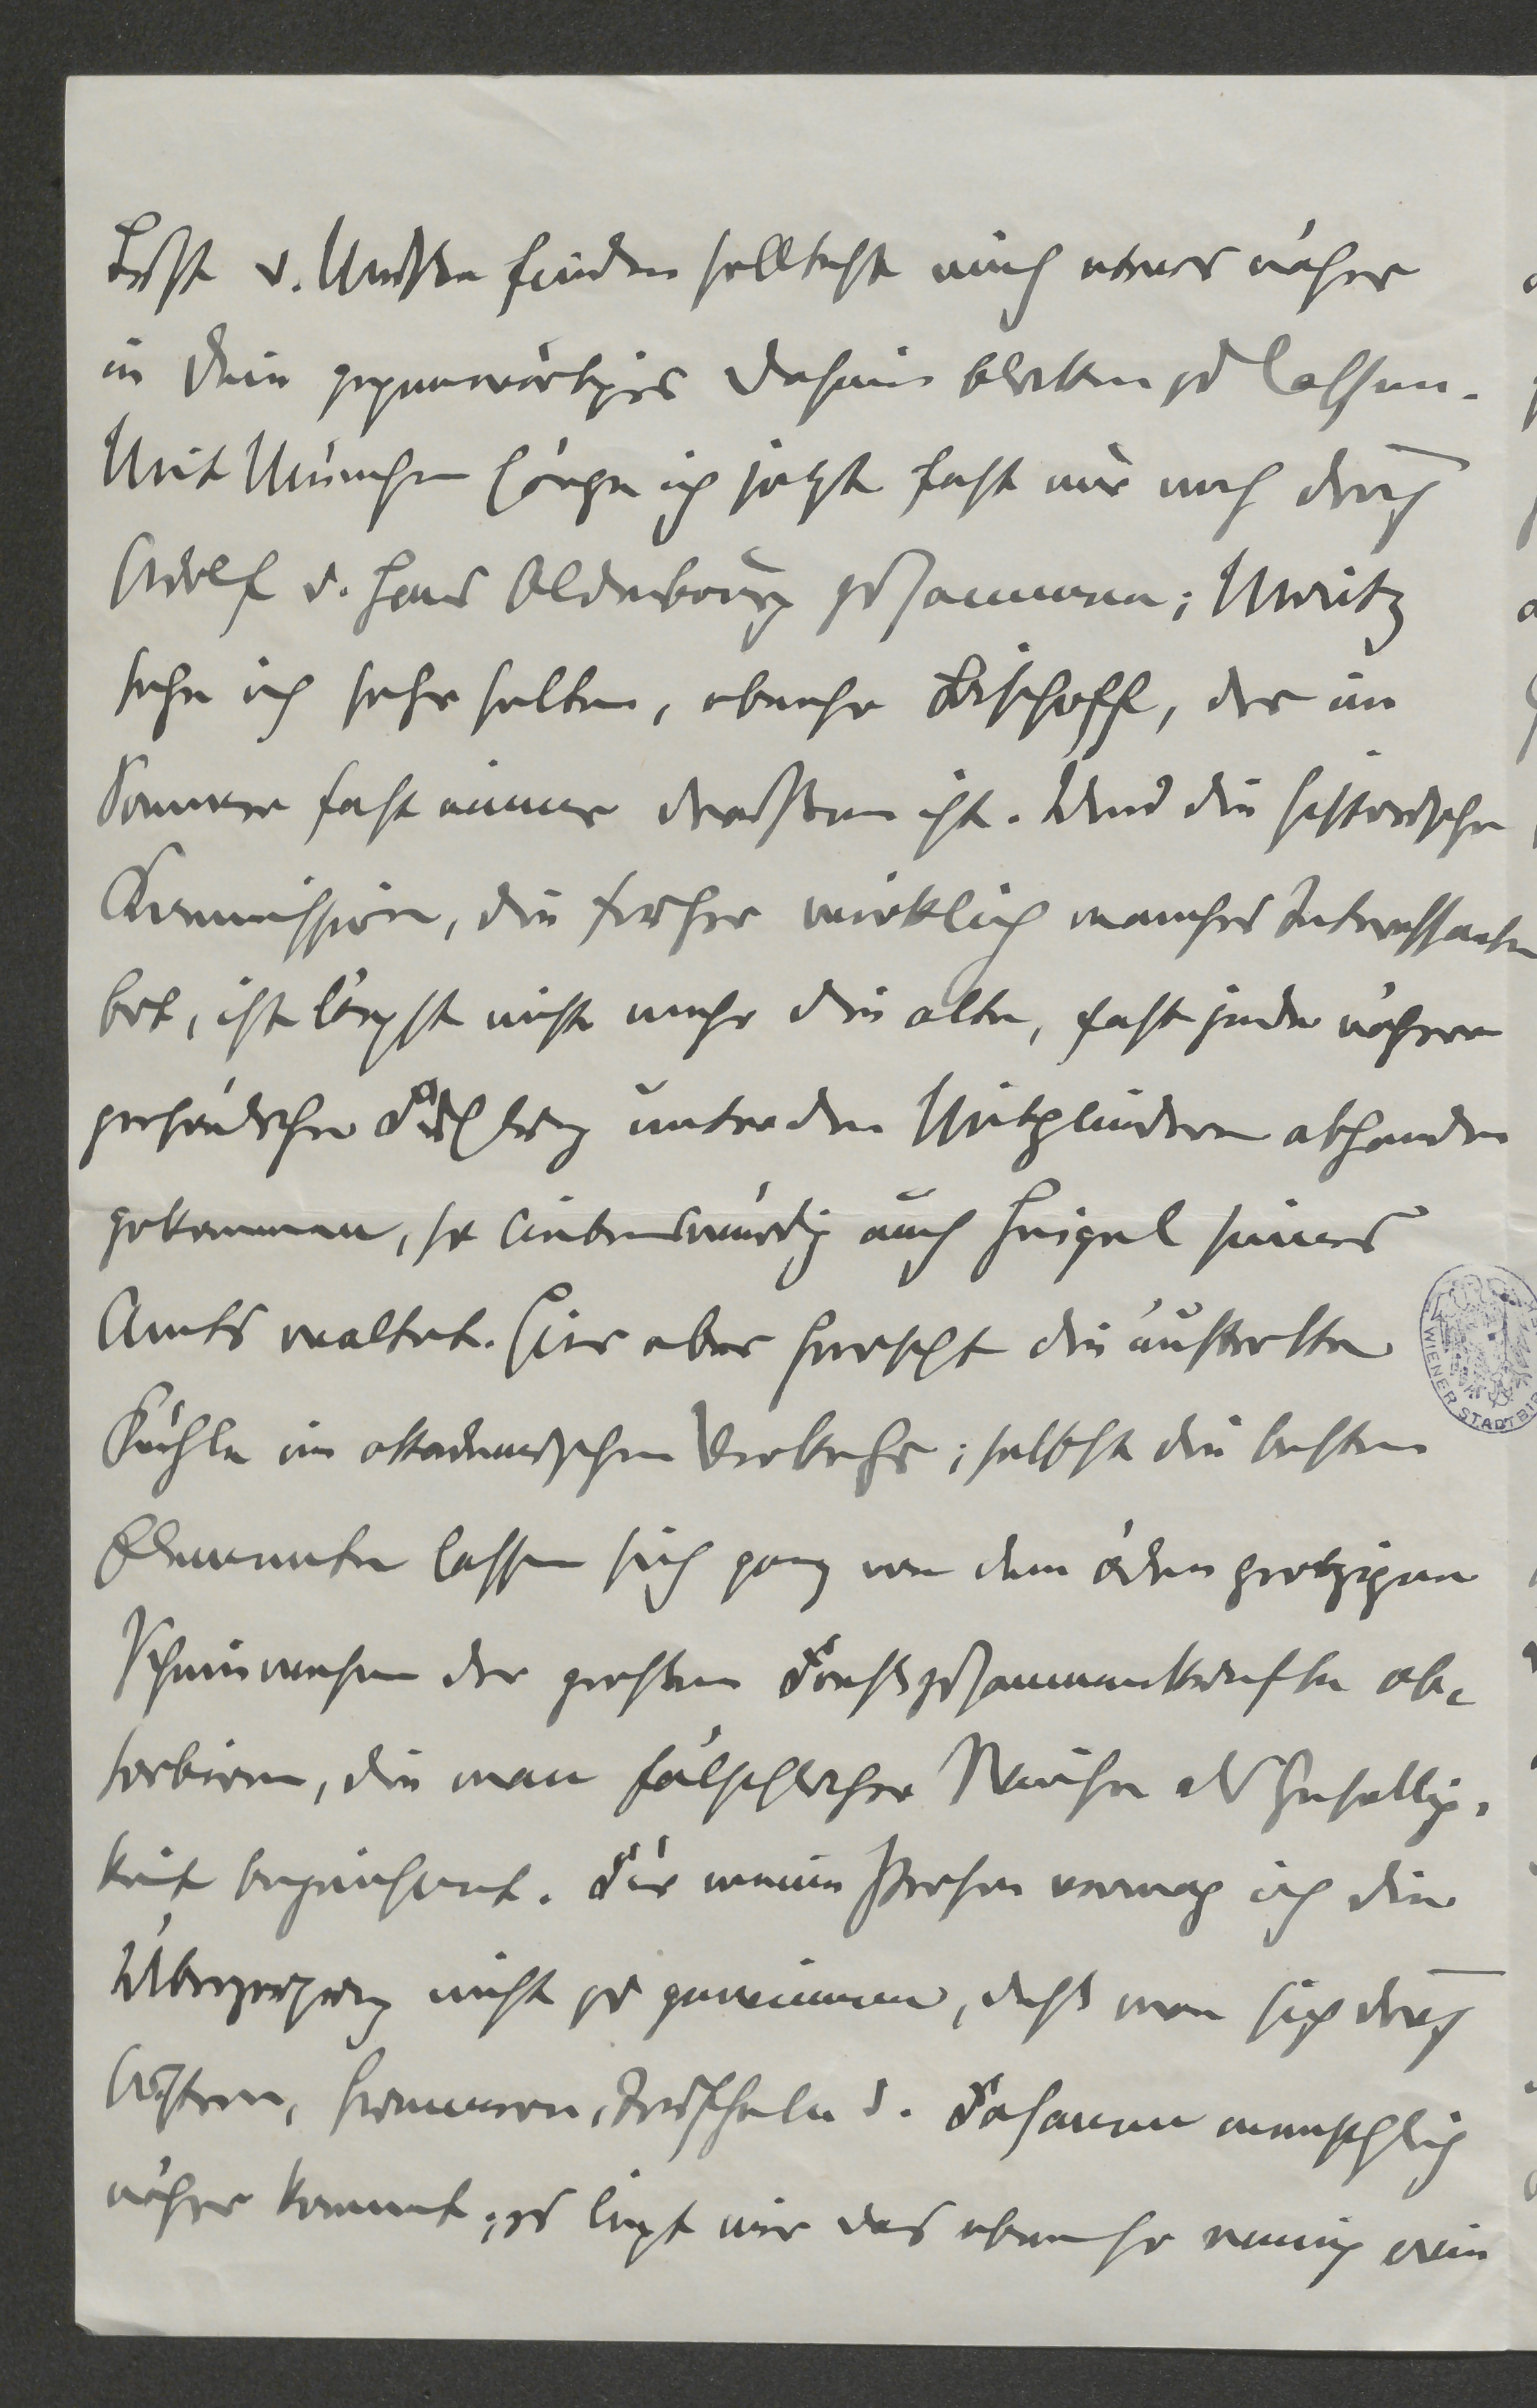 Lust u. Muße finden solltest mich etwas näher
in Dein gegenwärtiges Dasein blicken zu lassen.
Mit München hänge ich jetzt fast nur noch durch
Adolf u. Hans Oldenbourg zusammen; Moritz
sehe ich sehr selten, ebenso Bischoff, der im
Sommer fast immer draußen ist. Und die historische
Kommission, die früher wirklich manches Interessante
bot, ist längst nicht mehr die alte, fast jede nähere
persönliche Fühlung unter den Mitgliedern abhanden
gekommen, so liebenswürdig auch Heigel seines
Amts waltet. Hier aber herrscht die äußerste
Kühle im akademischen Verkehr; selbst die besten
Elemente lassen sich ganz von dem öden protzigen
Scheinwesen der großen Freßzusammenkünfte ab-
sorbiren, die man fälschlicher Weise als Gesellig-
keit bezeichnet. Für meine Person vermag ich die
Überzeugung nicht zu gewinnen, daß man sich durch
Austern, Hummern, Trüffeln u. Fasanen menschlich
näher kommt; es liegt mir das ebenso wenig wie
WIENER STADTBI